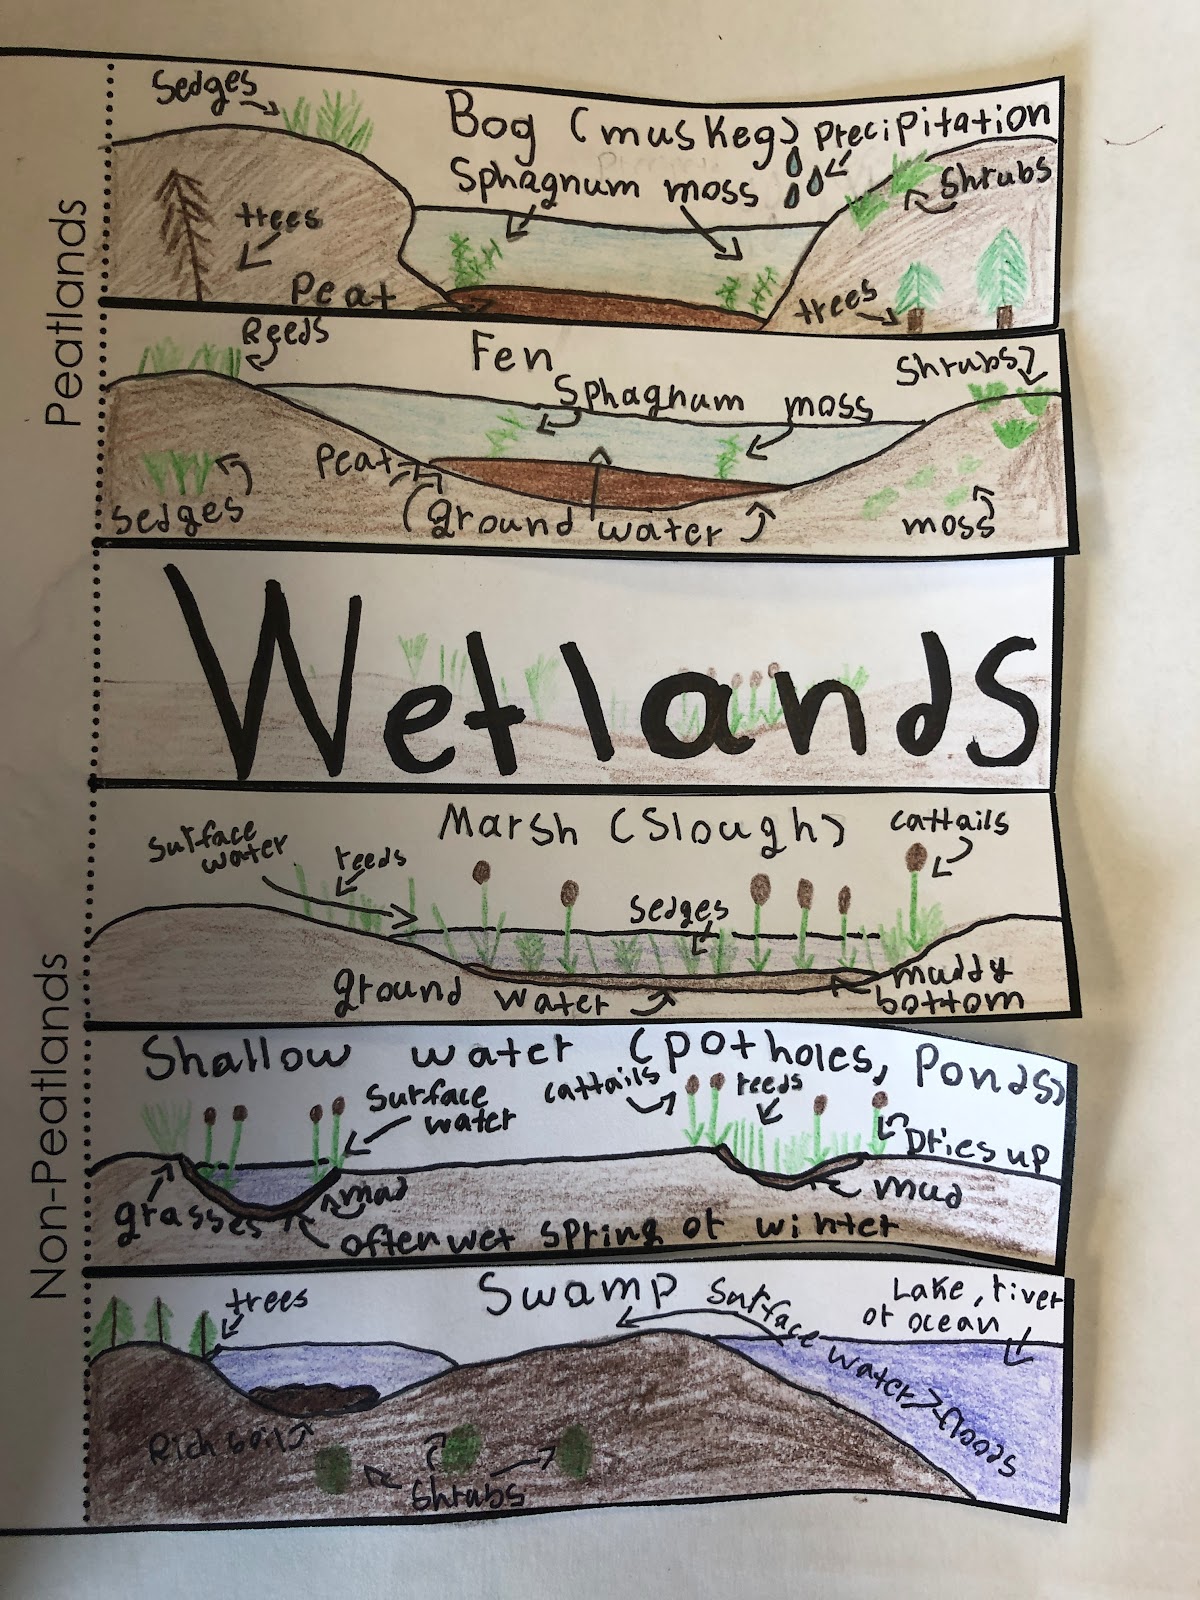 Peatlands
Sedges
Bog (muskeg) Precipitation
Sphagnum moss
Shrubs
trees
Peat
trees
Reeds
Fen
Shrubs
Sphagnum moss
Peat
sedges
ground water
moss
Wetlands
Non-Peatlands
Marsh (Slough)
cattails
surface
water
reeds
sedges
ground water
muddy
bottom
Shallow water (potholes, Ponds)
surface
water
cattails
reeds
Dries up
grasses
mud
mud
often wet spring or winter
Swamp
trees
Lake, river
or ocean
Surface water > floods
Rich soil
Shrubs